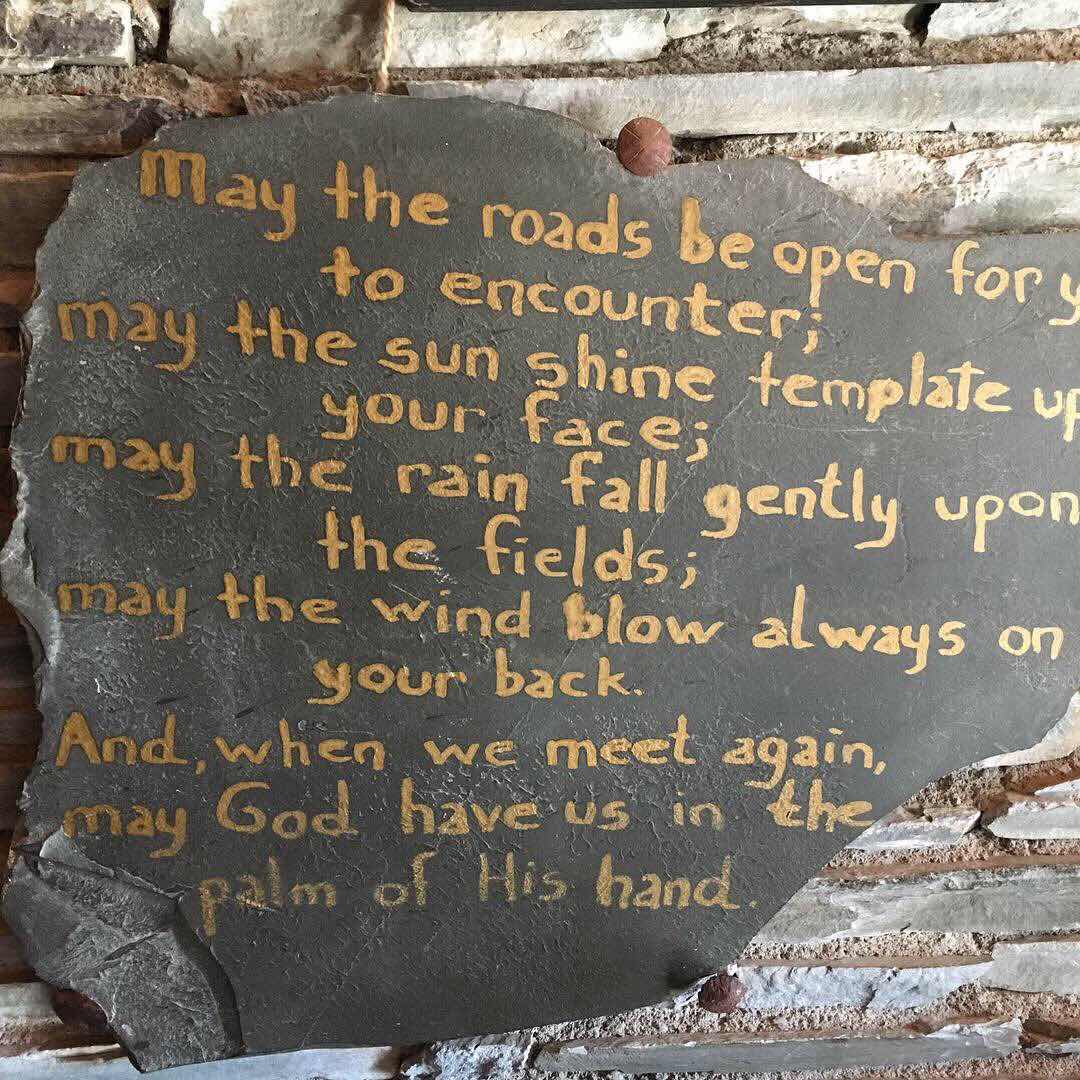 May the roads be open for y
to encounter;
may the sun shine template up
your face;
may the rain fall gently upon
the fields;
may the wind blow always on
your back.
And, when we meet again,
may God have us in the
palm of His hand.